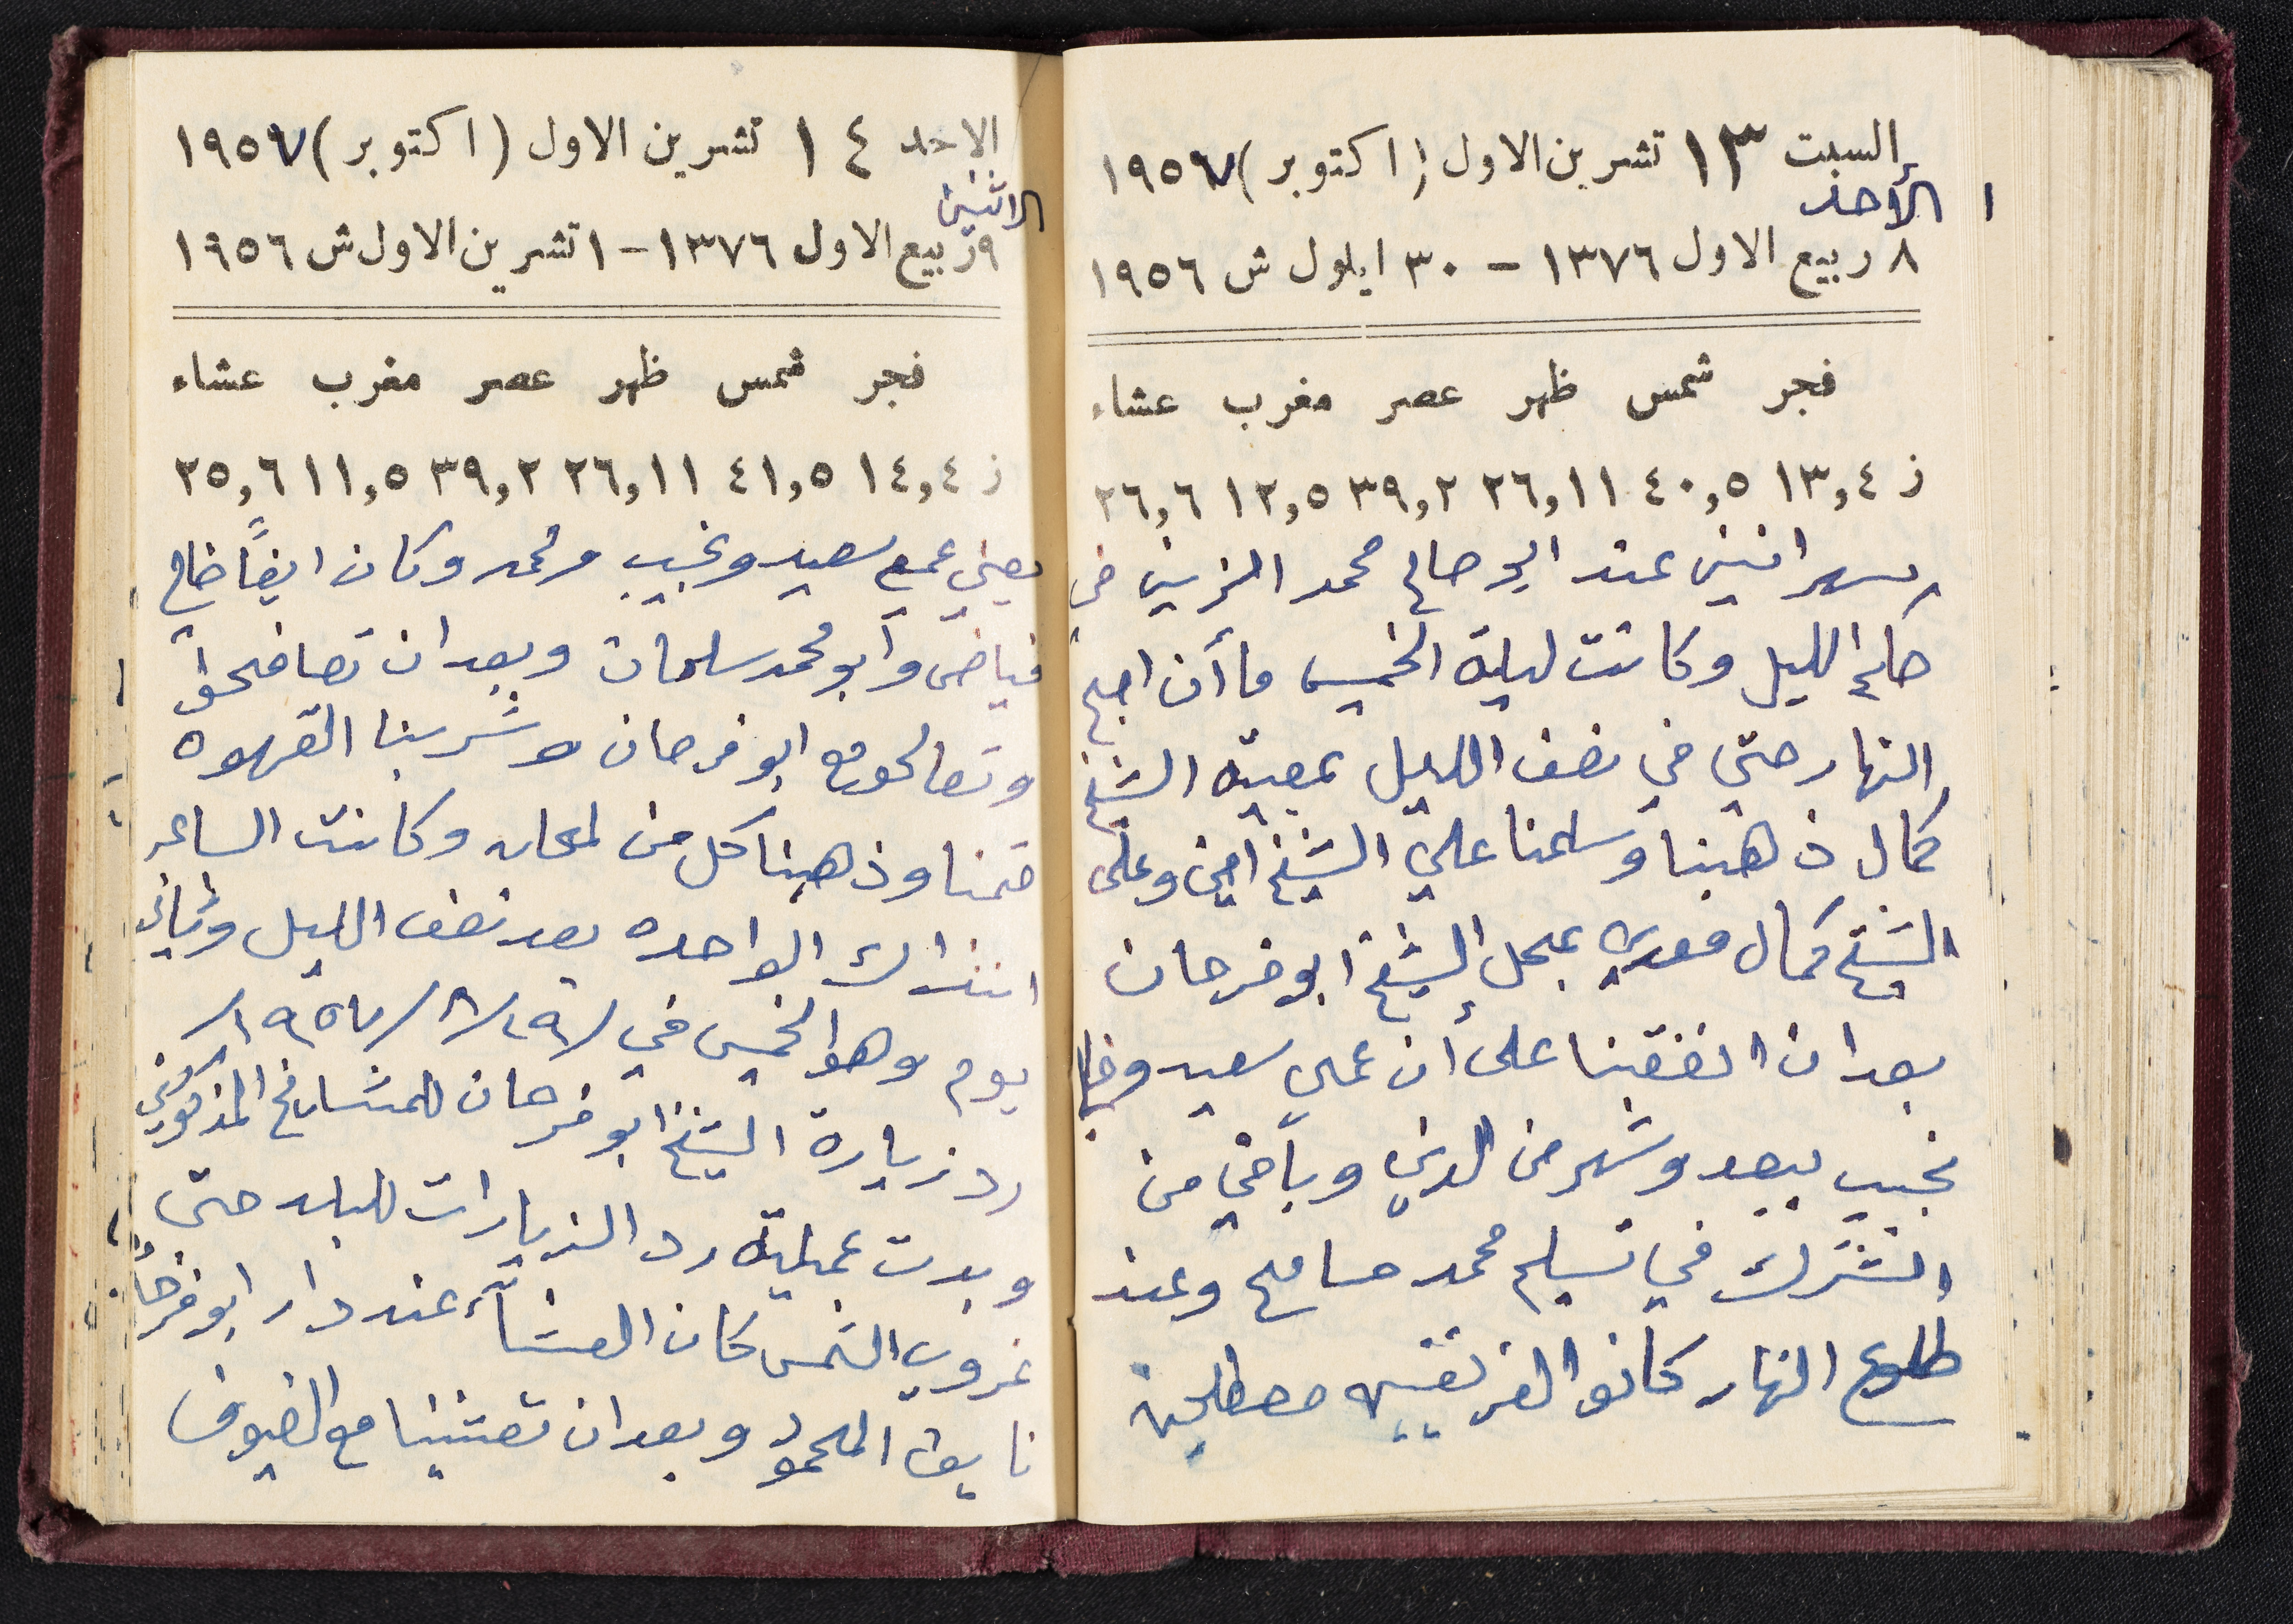 السبت ١٣ تشرين الاول (اكتوبر) ١٩٥٧
الأحد
٨ ربيع الاول ١٣٧٦ - ٣٠ ايلول ش ١٩٥٦
فجر شمس ظهر عصر مغرب عشاء
ز ١٣,٤ ٤٠,٥ ٢٦,١١ ٣٩,٢ ١٢,٥ ٢٦,٦
سهرانين عند ابو صالح محمد الزين في
هاي الليل وكانت ليلة الخميس ما أن اجى
النهار حتى في نصف الليل بمعية الشيخ
كمال ذهبنا وسلمنا على الشيخ امين وعلى
الشيخ كمال معدي بمحل الشيخ ابو فرحان
بعد ان اتفقنا على أن عمي سعيد وخا
نجيب يبعدو شهر من الدني وباقي من
اشترك في تسليم محمد مسامح وعند
طلوع النهار كانوا الفريقين مصطلحين
الاحد ١٤ تشرين الاول (اكتوبر) ١٩٥٧
الاثنين
٩ ربيع الاول ١٣٧٦ - ١ تشرين الاول ش ١٩٥٦
فجر شمس ظهر عصر مغرب عشاء
ز ١٤,٤ ٤١,٥ ٢٦,١١ ٣٩,٢ ١١,٥ ٢٥,٦
يعني عمي سعيد ونجيب ومحمد وكان ايضاً صالح
فياض وابو محمد سلمان وبعد ان تصافحوا
وتصالحو مع ابو فرحان وشربنا القهوه
قمنا وذهبنا كل من لمحله وكانت الساعه
انذاك الواحده بعد نصف الليل وثاني
يوم وهو الخميس في /٢٩/٨/١٩٥٧/
رد زيارة الشيخ ابو فرحان للمشايخ المذكورين
وبدت عملية رد الزيارات للبلد حتى
غروب الشمس كان العشاء عند دار ابو فرحان
نايف المحمود وبعد ان تعشينا مع الضيوف